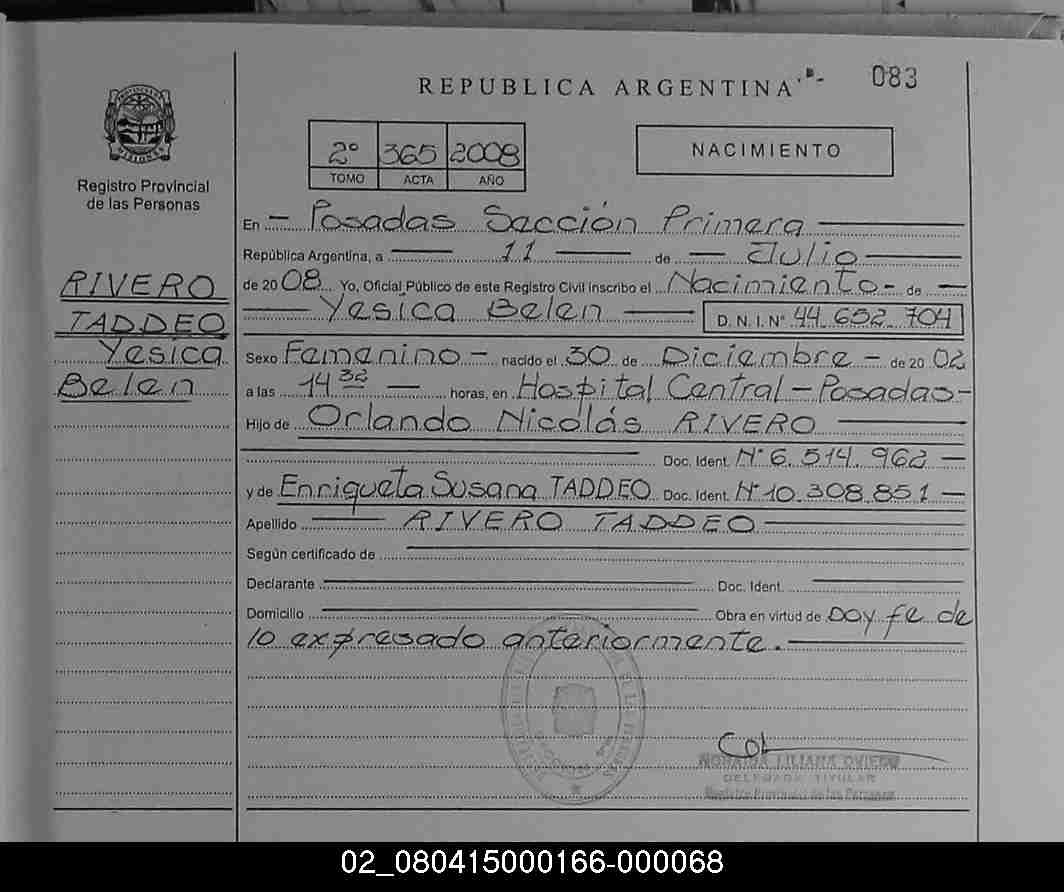 REPUBLICA ARGENTINA
083
2° 365 2008
TOMO ACTA AÑO
NACIMIENTO
MISIONES
Registro Provincial
de las Personas
RIVERO
TADDEO
Yesica
Belen
En — Posadas Sección Primera
República Argentina, a — 11 — de — Julio —
de 2008 Yo, Oficial Público de este Registro Civil inscribo el Nacimiento - de —
— Yesica Belen — D. N. I. N° 44 652 704
Sexo Femenino - nacido el 30 de Diciembre - de 20 02
a las 14 32 — horas, en Hospital Central - Posadas -
Hijo de Orlando Nicolás RIVERO —
Doc. Ident. N° 6. 514. 962 —
y de Enriqueta Susana TADDEO Doc. Ident. N° 10. 308. 851 —
Apellido — RIVERO TADDEO —
Según certificado de —
Declarante — Doc. Ident. —
Domicilio — Obra en virtud de Doy fe de
lo expresado anteriormente. —
LILIANA OVIEDO
DELEGADA TITULAR
Registro Provincial de las Personas
02_080415000166-000068